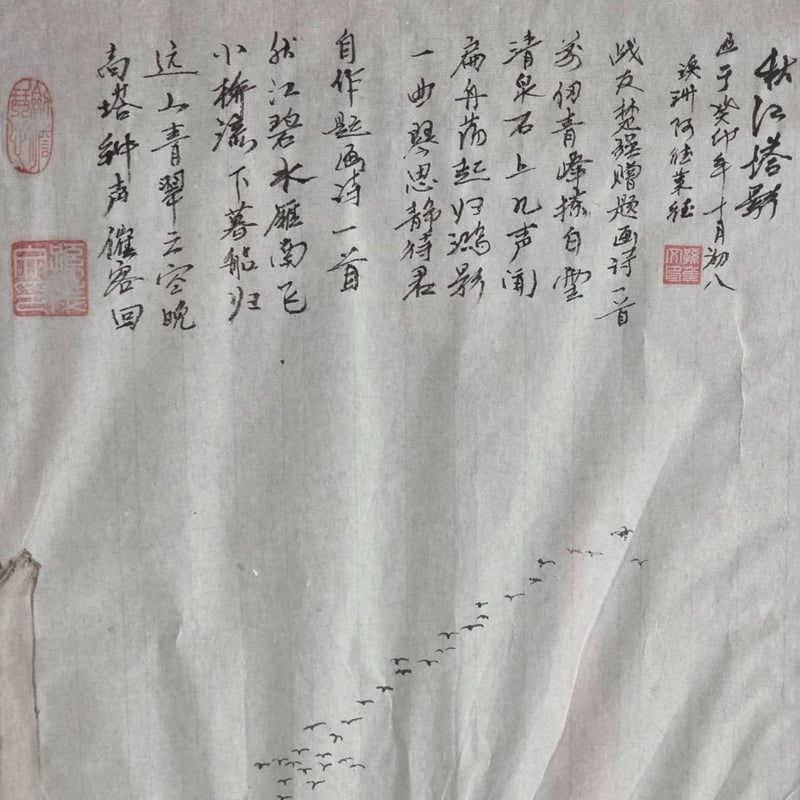 秋江塔影
画于癸卯年十月初八
珠珊阿德学钰
战友楚强赠题画诗一首
万仞青峰接白雲
清泉石上几声闻
扁舟荡起归鸿影
一曲琴思静待君
自作题画诗一首
秋江碧水雁南飞
小桥流下暮船归
远山青翠云空晚
高塔钟声催客回